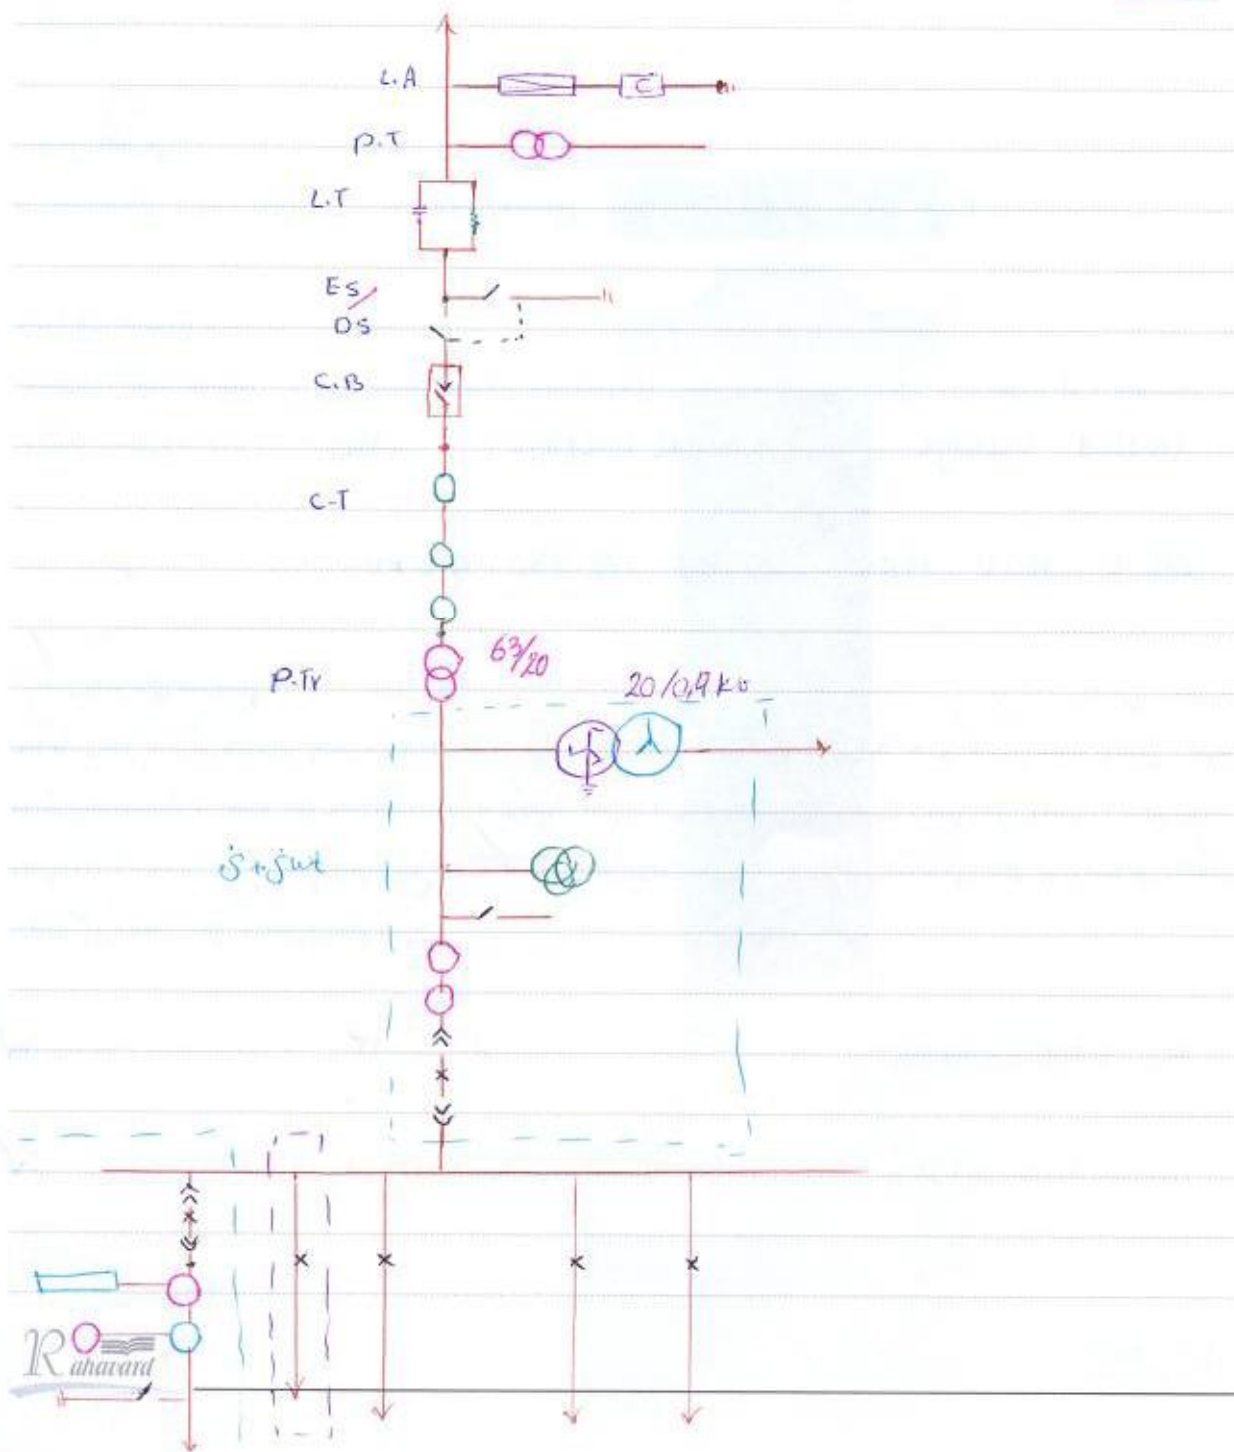 L.A
C
P.T
L.T
ES
DS
C.B
C-T
63/20
P.Tr
20/0,4 kv
Rahavard